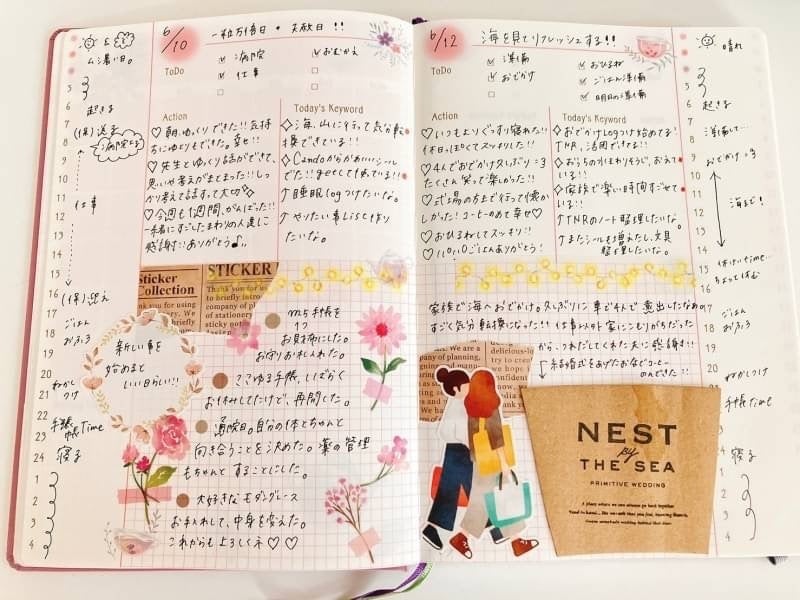 6/10 一粒万倍日・天赦日!!
ムシ暑い日。
ToDo
病院
おむかえ
仕事
Action
♡朝ゆっくりできた!!気持
ちにゆとりもできた。幸せ!!
♡先生とゆっくり話ができて、
思いや考えがまとまった!!しっ
かり考えて話すって大切
♡今週も1週間、がんばった!!
一緒にすごしたまわりの人達に
感謝!!ありがとう♪
Today's Keyword
◇海、山に行って気分転
換できている!!
◇Candoからかわいいシール
でた!!getしてきている!!
↑睡眠logつけたいな。
↑やりたい事Listもやり
たいな。
5
6
7
8
9
10
11
12
13
14
15
16
17
18
19
20
21
22
23
24
1
2
3
4
起きる
(保)送る
仕事
(保)迎え
ごはん
おふろ
ねかし
つけ
手帳
time
寝る
Sticker
Collection
STICKER
Thank you for using
新しい事を
始めると
いい日らしい!!
m5手帳を
お財布にした。
お守りお札入れた。
ここゆる手帳、しばらく
お休みしてたけど、再開した。
通院日。自分の体とちゃんと
向き合うことを決めた。薬の管理
もちゃんとすることにした。
大好きなモダングレース
お手入れして、中身を変えた。
これからも よろしくネ♡♡
6/12 海を見てリフレッシュする!!
晴れ
ToDo
準備
おひるね
おでかけ
ごはん準備
明日の準備
Action
♡いつもよりぐっすり寝れた!!
休日っぽくてスッキリした!!
♡4人でおでかけ久しぶり=3
たくさん笑って楽しかった!!
♡式場の方まで行って懐か
しかった!コーヒーのめて幸せ♡
♡おひるねしてスッキリ!!
Today's Keyword
◇おでかけLogつけ始めてる!
TNR、活用できてる!!
◇おうちの水まわりそうじ、おえて
いる!!
◇家族で楽しい時間すごせて
いる!!
↑TNRのノート整理したいな。
↑またシールも増えたし、文具
整理したいな。
家族で海へおでかけ。久しぶりに車で4人で遠出したなぁの
すごく気分転換になった!!仕事以外家にこもりがちだった
から、つれだしてくれた夫に感謝!!
↓結婚式をあげたお店でコーヒー
のんできた!!
5
6
7
8
9
10
11
12
13
14
15
16
17
18
19
20
21
22
23
24
1
2
3
4
起きる
準備して…
おでかけ=3
海まで!
ちょっと休む
ごはん
おふろ
ねかしつけ
手帳time
寝る
We are a
company of
planning,
delicious-lo
NEST
by
THE SEA
PRIMITIVE WEDDING